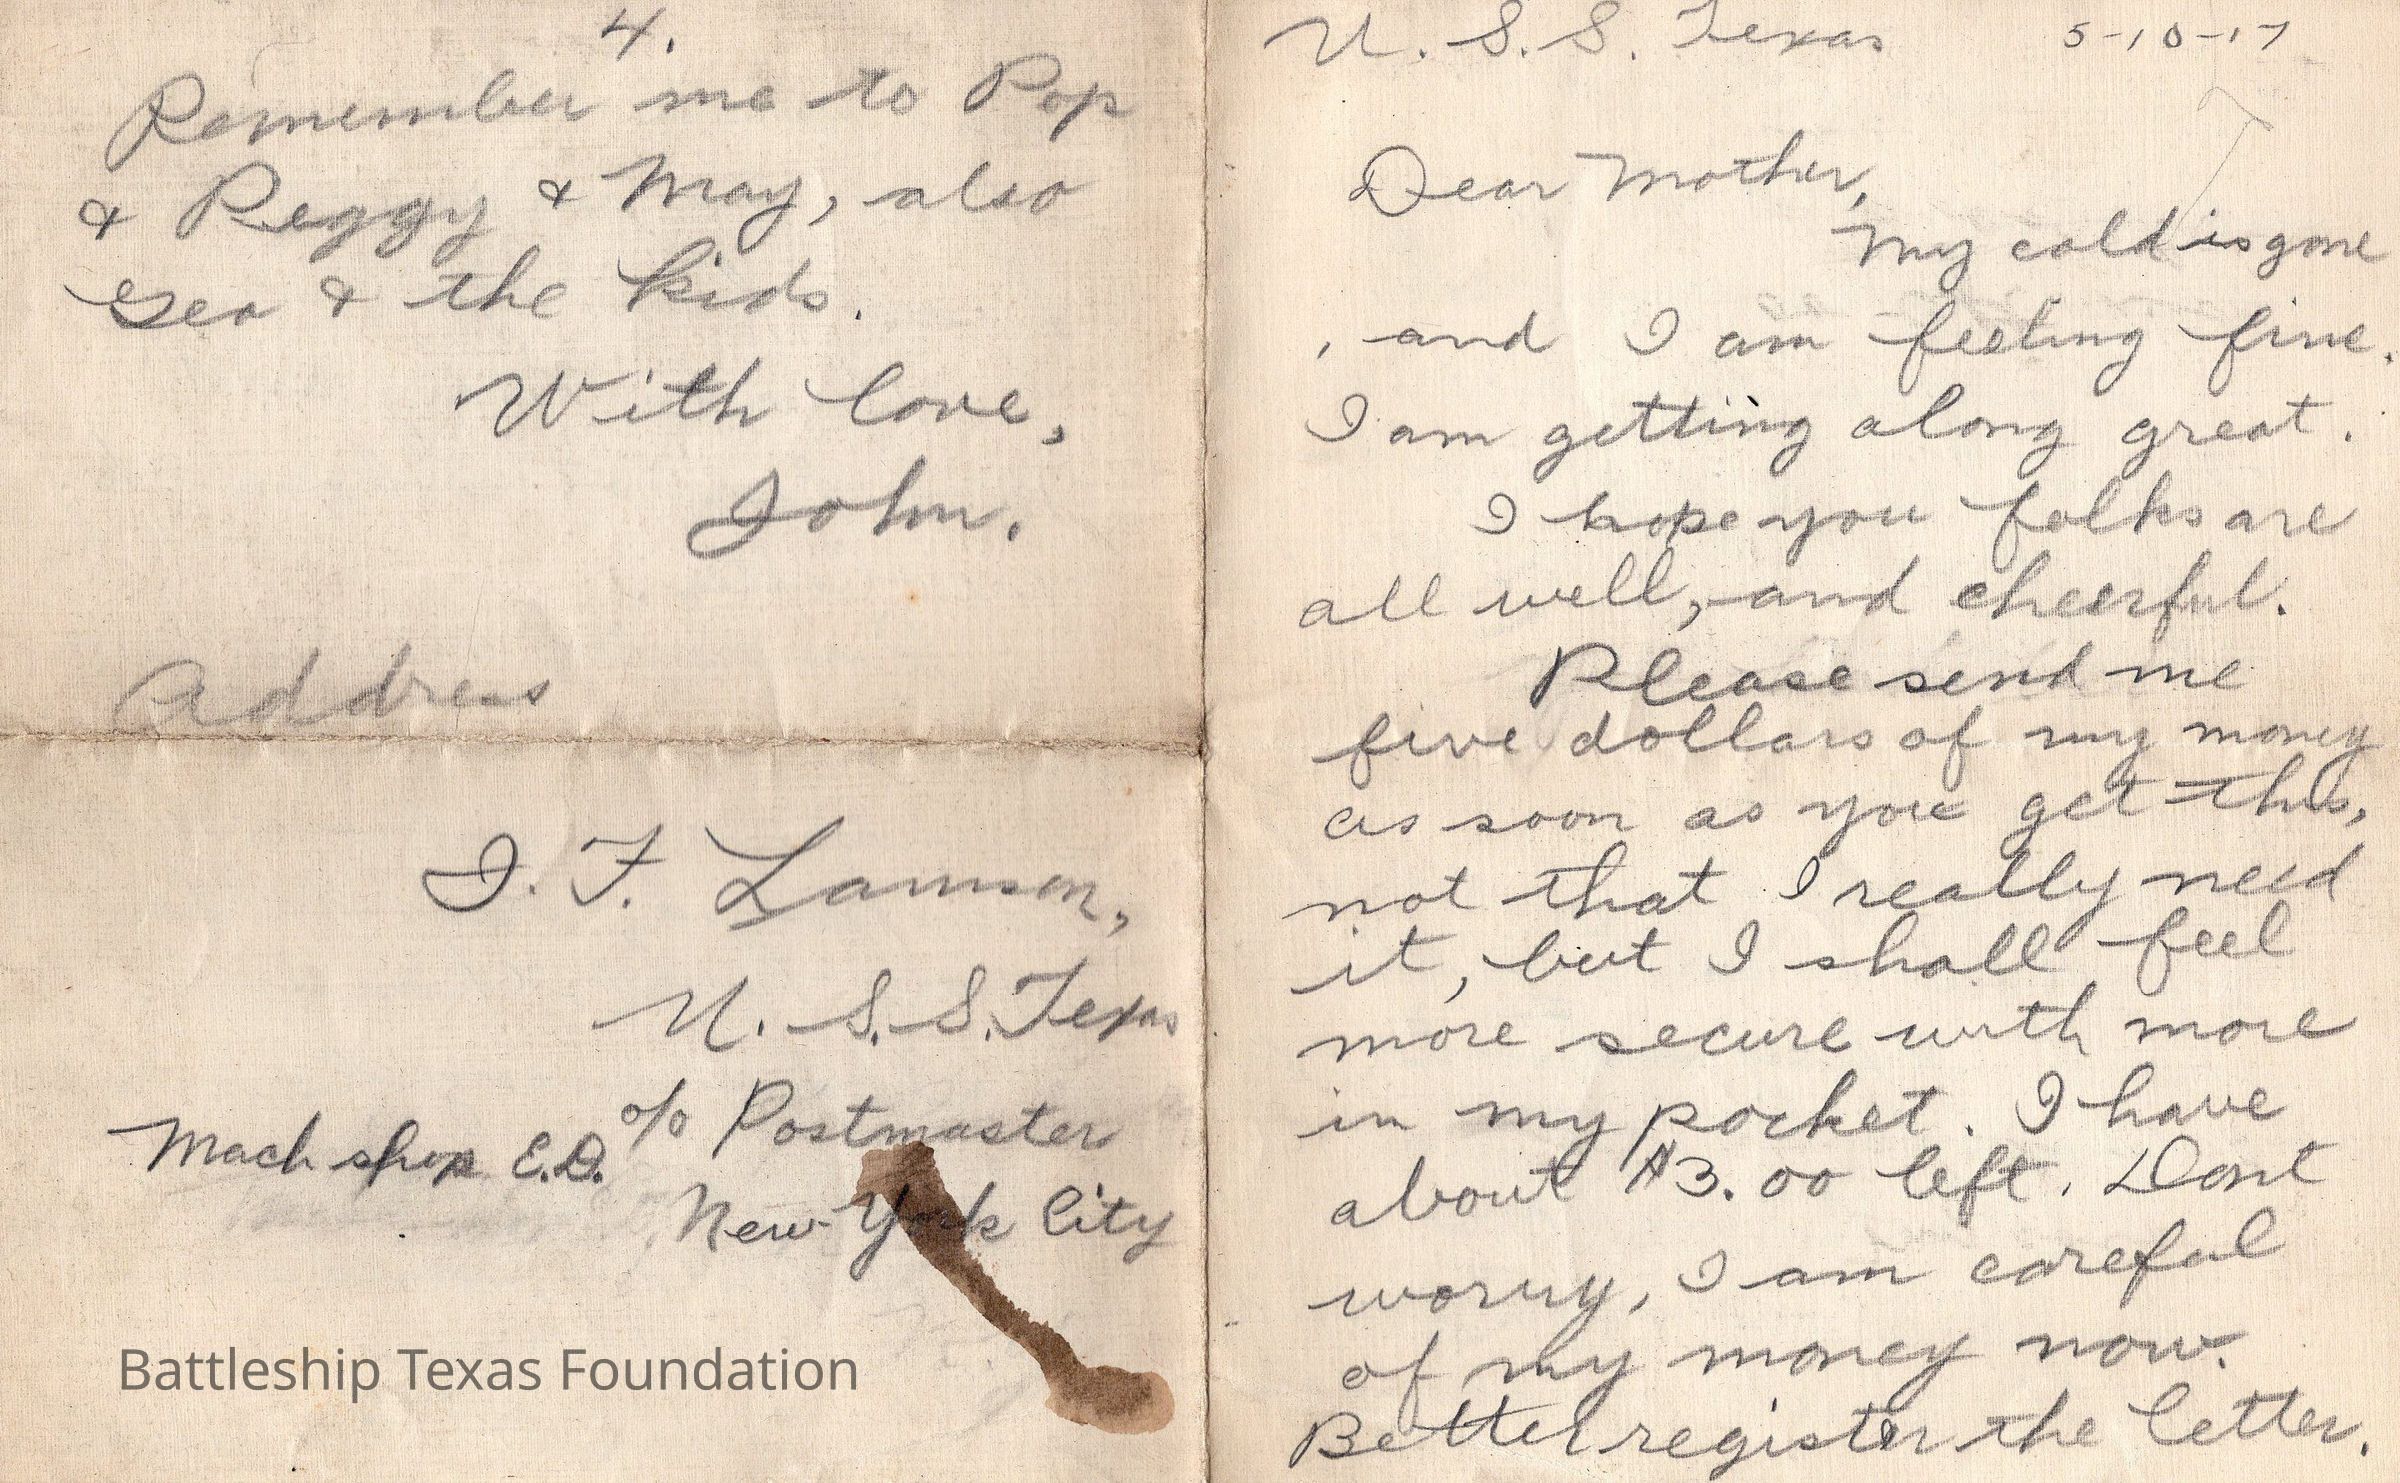 4.
Remember me to Pop
& Peggy & May, also
Geo & the kids.
With love,
John.
Address
J. F. Lamson,
U. S. S. Texas
% Postmaster
Mach shop E.D.
New York City
Battleship Texas Foundation
U. S. S. Texas 5-10-17
Dear Mother,
My cold is gone
, and I am feeling fine.
I am getting along great.
I hope you folks are
all well, and cheerful.
Please send me
five dollars of my money
as soon as you get this,
not that I really need
it, but I shall feel
more secure with more
in my pocket. I have
about $3.00 left. Dont
worry, I am careful
of my money now.
Better register the letter.